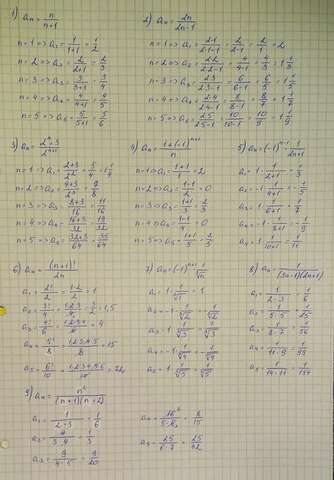 1) aₙ = n/(n+1)
n=1 => a₁ = 1/(1+1) = 1/2
n=2 => a₂ = 2/(2+1) = 2/3
n=3 => a₃ = 3/(3+1) = 3/4
n=4 => a₄ = 4/(4+1) = 4/5
n=5 => a₅ = 5/(5+1) = 5/6
2) aₙ = 2n/(2n-1)
n=1 => a₁ = 2·1/(2·1-1) = 2/(2-1) = 2/1 = 2
n=2 => a₂ = 2·2/(2·2-1) = 4/(4-1) = 4/3 = 1 1/3
n=3 => a₃ = 2·3/(2·3-1) = 6/(6-1) = 6/5 = 1 1/5
n=4 => a₄ = 2·4/(2·4-1) = 8/(8-1) = 8/7 = 1 1/7
n=5 => a₅ = 2·5/(2·5-1) = 10/(10-1) = 10/9 = 1 1/9
3) aₙ = (2ⁿ+3)/2ⁿ⁺¹
n=1 => a₁ = (2+3)/2² = 5/4 = 1 1/4
n=2 => a₂ = (4+3)/2³ = 
n=3 => a₃ = (8+3)/16 = 11/16
n=4 => a₄ = (16+3)/32 = 19/32
n=5 => a₅ = (32+3)/64 = 35/64
4) aₙ = (1+(-1)ⁿ⁺¹)/n
n=1 => a₁ = (1+1)/1 = 2
n=2 => a₂ = (1-1)/2 = 0
n=3 => a₃ = (1+1)/3 = 2/3
n=4 => a₄ = (1-1)/4 = 0
n=5 => a₅ = (1+1)/5 = 2/5
5) aₙ = (-1)ⁿ⁺¹ 1/(2n+1)
a₁ = 1· 1/(2+1) = 1/3
a₂ = -1· 1/(4+1) = -1/5
a₃ = 1· 1/(6+1) = 1/7
a₄ = -1· 1/(8+1) = -1/9
a₅ = 1· 1/(10+1) = 1/11
6) aₙ = (n+1)!/2n
a₁ = 2!/2 = 1·2/2 = 1
a₂ = 3!/4 = 1·2·3/4 = 3/2 = 1,5
a₃ = 4!/6 = 1·2·3·4/6 = 4
a₄ = 5!/8 = 1·2·3·4·5/8 = 15
a₅ = 6!/10 = 1·2·3·4·5·6/10 = 72
7) aₙ = (-1)ⁿ⁺¹ 1/√n
a₁ = 1· 1/√1 = 1
a₂ = -1· 1/√2 = -1/√2
a₃ = 1· 1/√3 = 1/√3
a₄ = -1· 1/√4 = -1/√4
a₅ = 1· 1/√5 = 1/√5
8) aₙ = 1/((3n-1)(2n+1))
a₁ = 1/(2·3) = 1/6
a₂ = 1/(5·5) = 1/25
a₃ = 1/(8·7) = 1/56
a₄ = 1/(11·9) = 1/99
a₅ = 1/(14·11) = 1/154
9) aₙ = n²/((n+1)(n+2))
a₁ = 1/(2·3) = 1/6
a₂ = 4/(3·4) = 1/3
a₃ = 9/(4·5) = 9/20
a₄ = 16/(5·6) = 8/15
a₅ = 25/(6·7) = 25/42